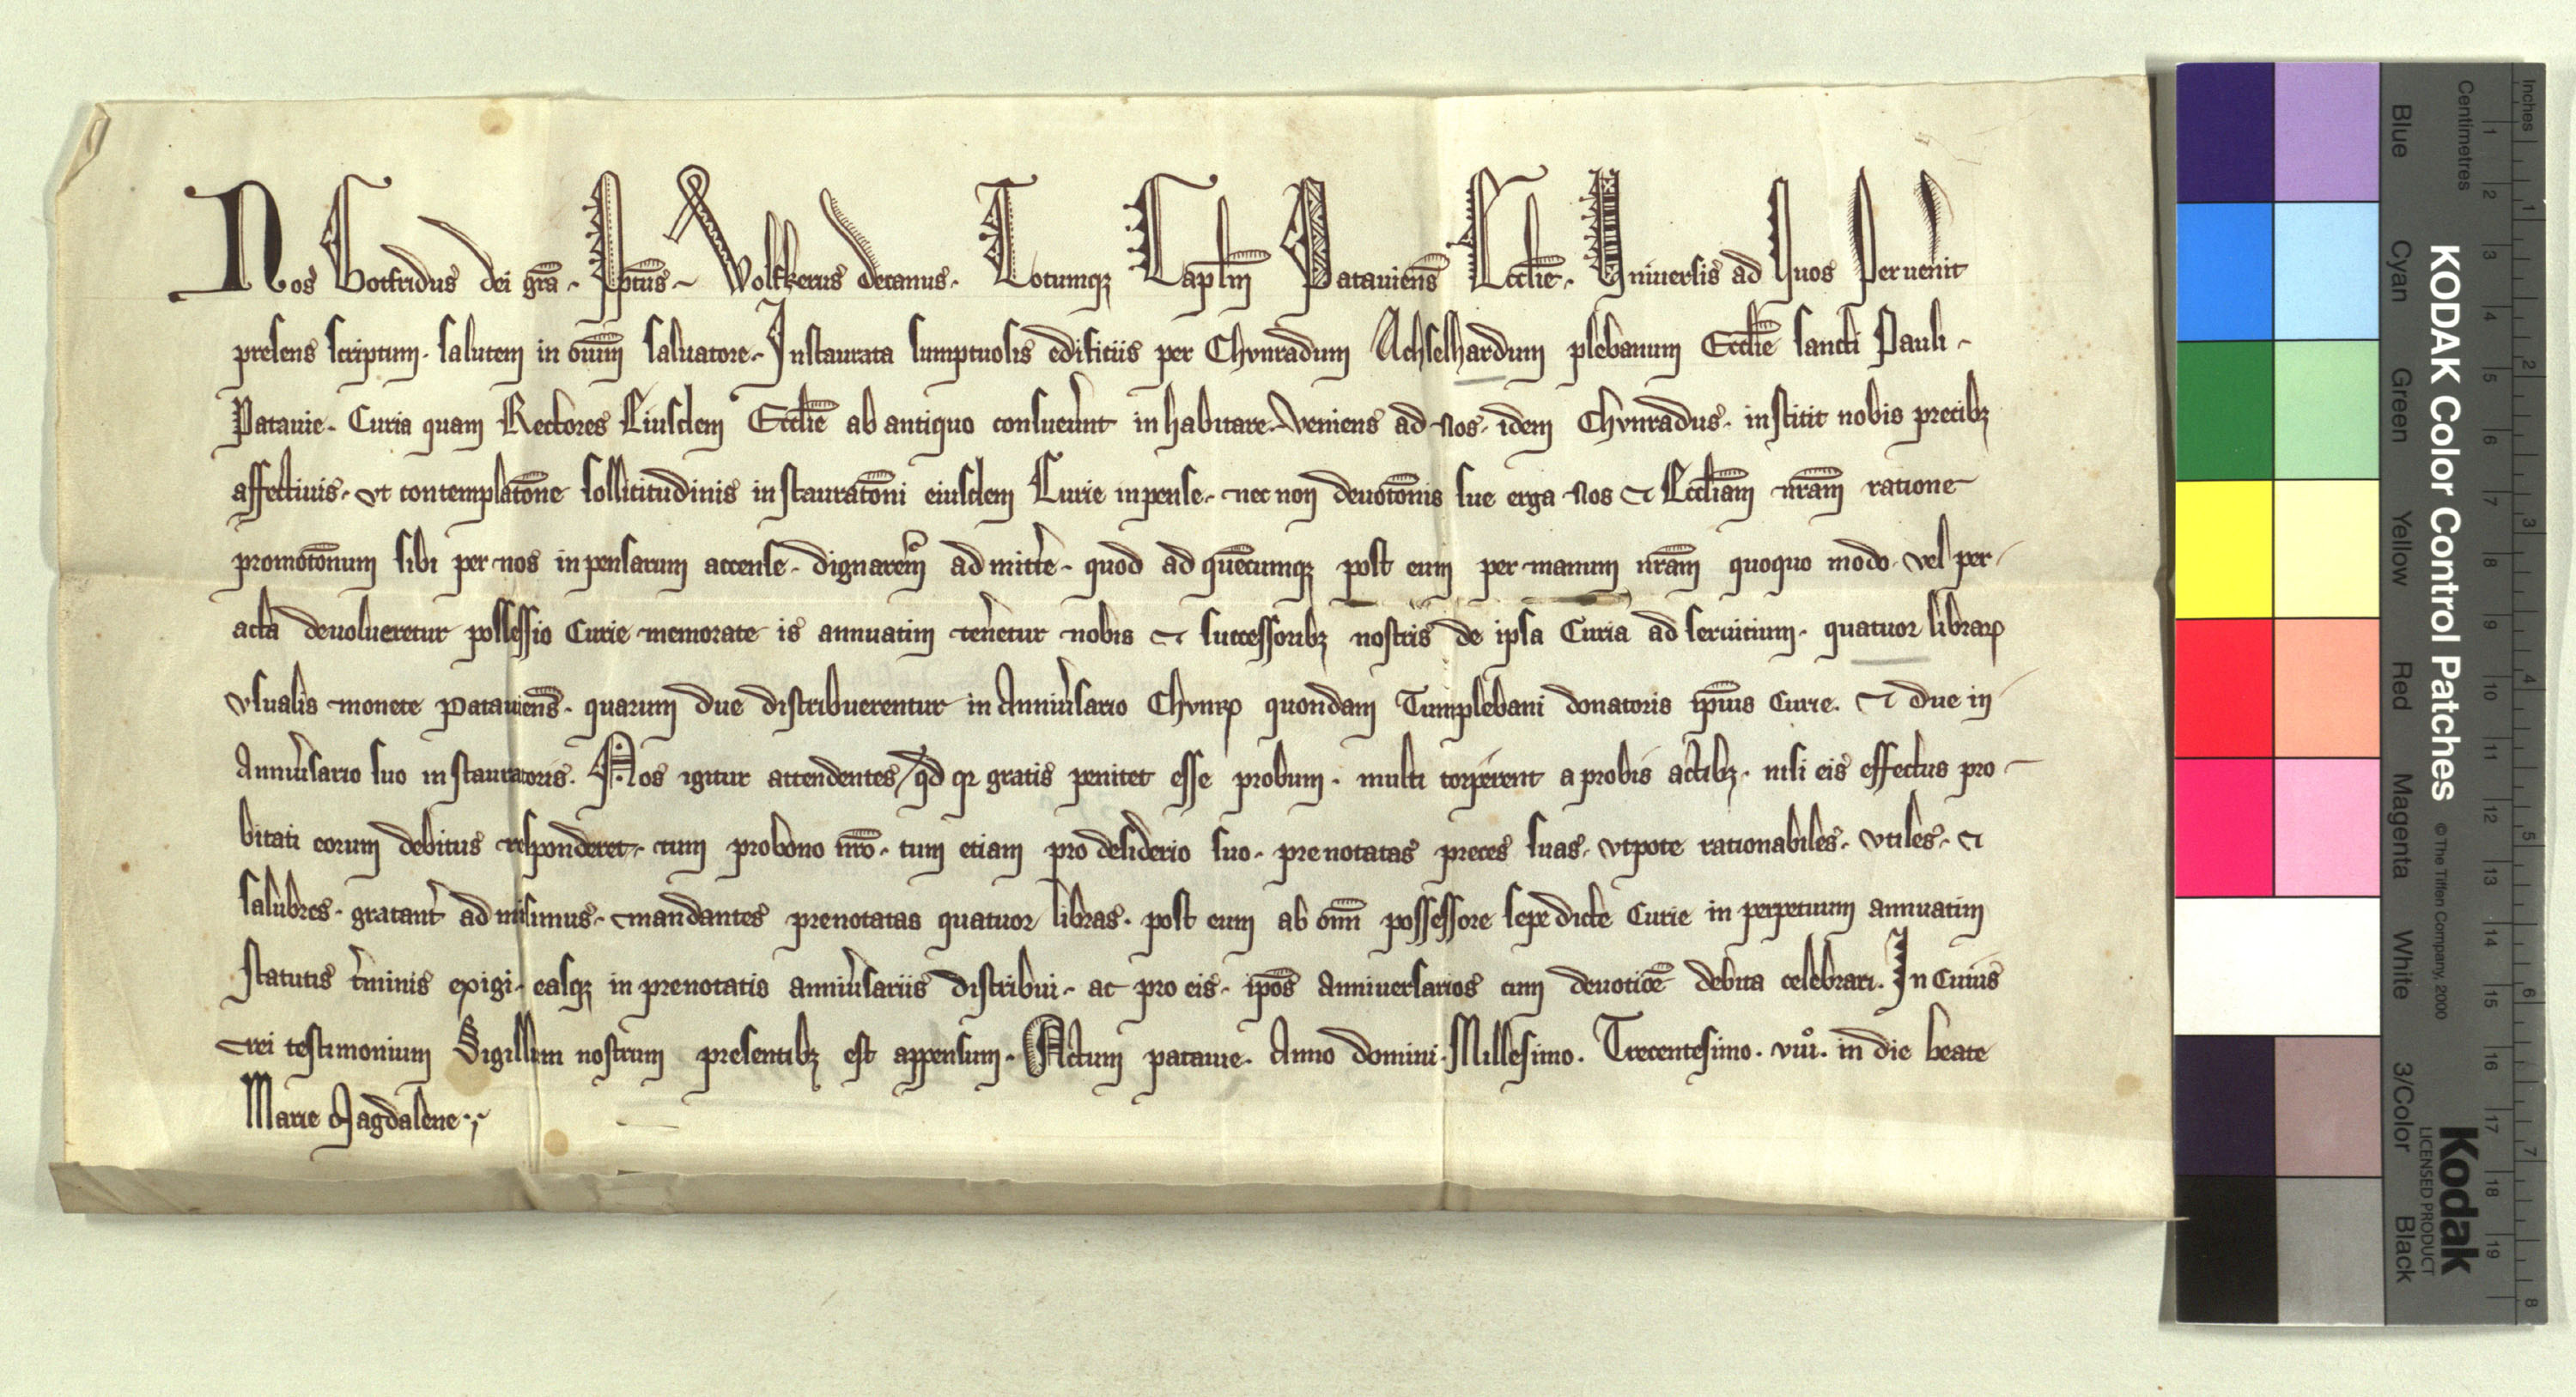 Nos Gotfridus dei grā. Pptus. Wolfkerus decanus. Totumqꝫ Caplm Patauiens̄ Eccl̄ie. Vniuersis ad Quos Peruenit
presens scriptum. salutem in om̄im saluatore. Instaurata sumptuosis edificiis per Chvnradum Achselhardum plebanum Eccl̄ie sancti Pauli
Patauie. Curia quam Rectores Eiusdem Eccl̄ie ab antiquo consueuer̄nt inhabitare. Veniens ad nos. idem Chvnradus. institit nobis precibꝫ
affectiuis. vt contemplatōne sollicitudinis instauratōni eiusdem Curie inpense. nec non deuotōnis sue erga nos et Eccl̄iam nr̄am ratione
promotōnum sibi per nos inpensarum accense. dignarem̄ admitt̄e. quod ad quēcumqꝫ post eum per manum nr̄am quoquo modo. vel per
acta deuolueretur possessio Curie memorate is annuatim ten̄etur nobis et successoribꝫ nostris de ipsa Curia ad seruitium. quatuor librarꝝ
vsualis monete patauiens̄. quarum due distribuerentur in Anniu̓sario Chvnrꝝ quondam Tumplebani donatoris ip̄ius Curie. et due in
Anniu̓sario suo instauratoris. Nos igitur attendentes qd qr gratis penitet esse probum. multi torperent a probis actibꝫ. nisi eis effectus pro
bitati eorum debitus responderet. tum pro bono nr̄o. tum etiam pro desiderio suo. prenotatas preces suas. vtpote rationabiles. vtiles. et
salubres. gratant̓ admisimus. mandantes prenotatas quatuor libras. post eum ab om̄i possessore sepedicte Curie in perpetuum annuatim
statutis t̓minis exigi. easqꝫ in prenotatis anniu̓sariis distribui. ac pro eis. ip̄os anniuersarios cum deuotiōe debita celebrari. In Cuius
rei testimonium Sigillum nostrum presentibꝫ est appensum. Actum patauie. Anno domini. Millesimo. Trecentesimo. viiiͦ. in die beate
Marie Magdalene.
Inches 1 2 3 4 5 6 7 8
Centimetres 1 2 3 4 5 6 7 8 9 10 11 12 13 14 15 16 17 18 19
KODAK Color Control Patches © The Tiffen Company, 2000 Kodak
LICENSED PRODUCT
Blue Cyan Green Yellow Red Magenta White 3/Color Black